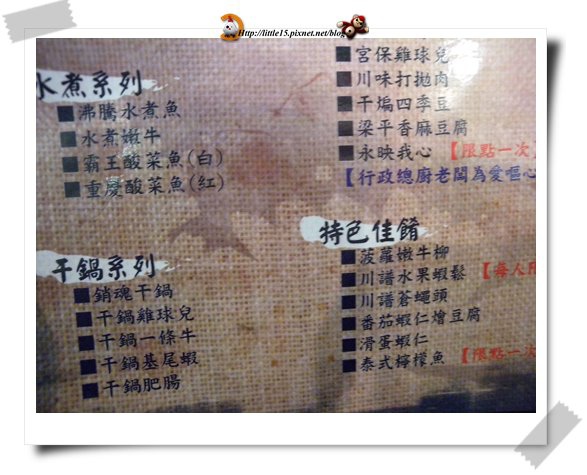 Http://little15.pixnet.net/blog
水煮系列
沸騰水煮魚
水煮嫩牛
霸王酸菜魚(白)
重慶酸菜魚(紅)
干鍋系列
銷魂干鍋
干鍋雞球兒
干鍋一條牛
干鍋基尾蝦
干鍋肥腸
宮保雞球兒
川味打拋肉
干煸四季豆
梁平香麻豆腐
永映我心【限點一次】
【行政總廚老闆為愛嘔心
特色佳餚
菠蘿嫩牛柳
川譜水果蝦鬆【每人限
川譜蒼蠅頭
番茄蝦仁燴豆腐
滑蛋蝦仁
泰式檸檬魚【限點一次